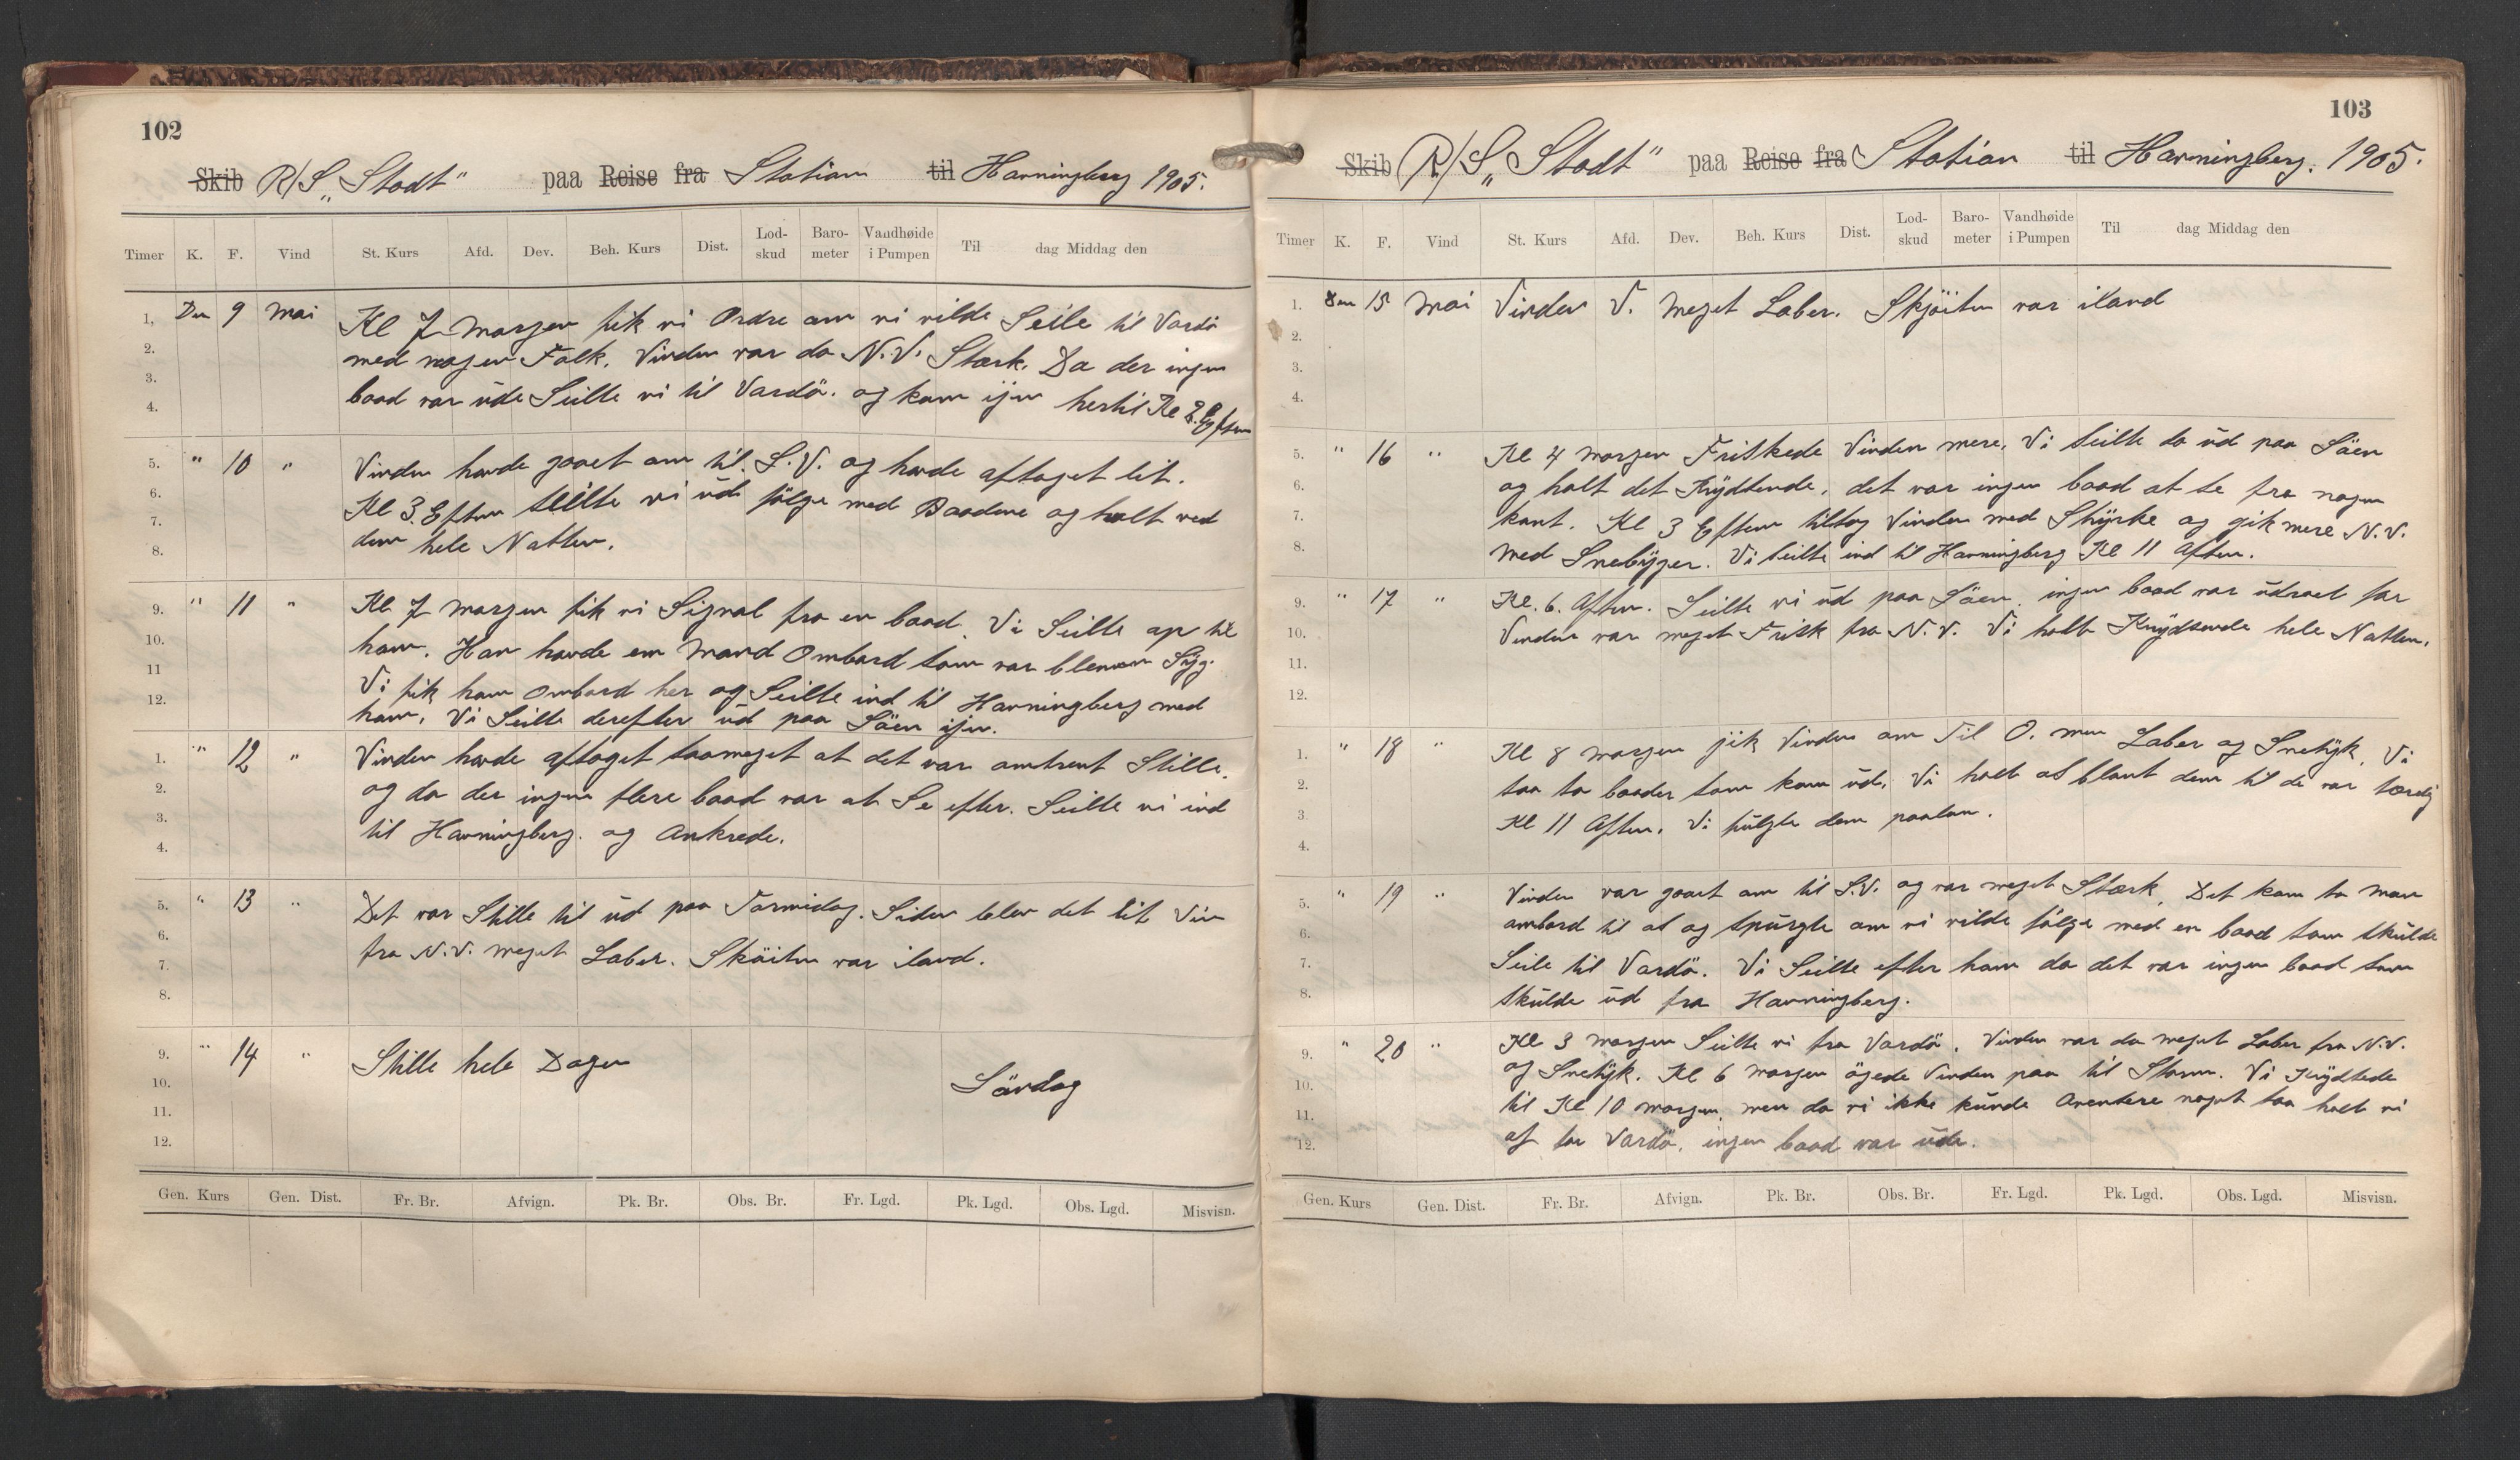 102
Skib R/S „Stadt" paa Reise fra Station til Havningberg 1905.
Timer K. F. Vind St. Kurs Afd. Dev. Beh. Kurs Dist. Lod-skud Baro-meter Vandhøide i Pumpen Til dag Middag den
1. Den 9 Mai Kl 7 Morgen fik vi Ordre om vi vilde Seile til Vardö
2. med nogen Folk. Vinden var da N.V. Stærk. Da der ingen
3. baad var ude Seilte vi til Vardö. og kom ijen hertil Kl 2 Eftm
4.
5. " 10 " Vinden havde gaaet om til S.V. og havde aftaget lit.
6. Kl 3 Eftm seilte vi ud fölge med Baadene og holt ved
7. dem hele Natten.
8.
9. " 11 " Kl 7 Morgen fik vi Signal fra en baad. Vi Seilte op til
10. ham. Han havde en Mand Ombord som var bleven Syg.
11 Vi fik ham Ombord her og Seilte ind til Havningberg med
12. ham. Vi Seilte derefter ud paa Söen ijen.
1. " 12 " Vinden havde aftaget saameget at det var omtrent Stille.
2. og da der ingen flere baad var at Se efter. Seilte vi ind
3. til Havningberg. og Ankrede.
4.
5. " 13 " Det var Stille til ud paa Formidag. Siden blev det lit Vin
6. fra N.V. meget Laber. Sköiten var iland.
7.
8.
9. " 14 " Stille hele Dagen
10. Söndag
11.
12.
Gen. Kurs Gen. Dist. Fr. Br. Afvign. Pk. Br. Obs. Br. Fr. Lgd. Pk. Lgd. Obs. Lgd. Misvisn.
103
Skib R/S „Stadt" paa Reise fra Station til Havningberg. 1905.
Timer K. F. Vind St. Kurs Afd. Dev. Beh. Kurs Dist. Lod-skud Baro-meter Vandhøide i Pumpen Til dag Middag den
1. Den 15 Mai Vinden V. meget Laber. Skjöiten var iland
2.
3.
4.
5. " 16 " Kl 4 Morgen Friskede Vinden mere. Vi seilte da ud paa Söen
6. og holt det Krydsende. det var ingen baad at se fra nogen
7. kant. Kl 3 Eftm tiltog Vinden med Styrke og gik mere N.V.
8. med Snebyger. Vi seilte ind til Havningberg Kl 11 Aften.
9. " 17 " Kl. 6. Aften. Seilte vi ud paa Söen. ingen baad var udroet for
10. Vinden var meget Frisk fra N.V. Vi holt Krydsende hele Natten.
11.
12.
1. " 18 " Kl 8 Morgen jik Vinden om Til O. men Laber og Snetyk. Vi
2. saa to baader som kom ud. Vi holt os blant dem til de var færdig
3 Kl 11 Aften. Vi fulgte dem paalan.
4.
5. " 19 " Vinden var gaaet om til S.V. og var meget Stærk. Det kom to man
6. ombord til os og spurgte om vi vilde fölge med en baad som skulde
7. Seile til Vardö. Vi Seilte efter ham da det var ingen baad som
8. skulde ud fra Havningberg.
9. " 20 " Kl 3 Morgen Seilte vi fra Vardö. Vinden var da meget Laber fra N.V.
10. og Snetyk. Kl 6 Morgen ögede Vinden paa til Storm. Vi Krydsede
11. til Kl 10 morgen. men da vi ikke kunde Aventere noget saa holt vi
12. af for Vardö. ingen baad var ude.
Gen. Kurs Gen. Dist. Fr. Br. Afvign. Pk. Br. Obs. Br. Fr. Lgd. Pk. Lgd. Obs. Lgd. Misvisn.